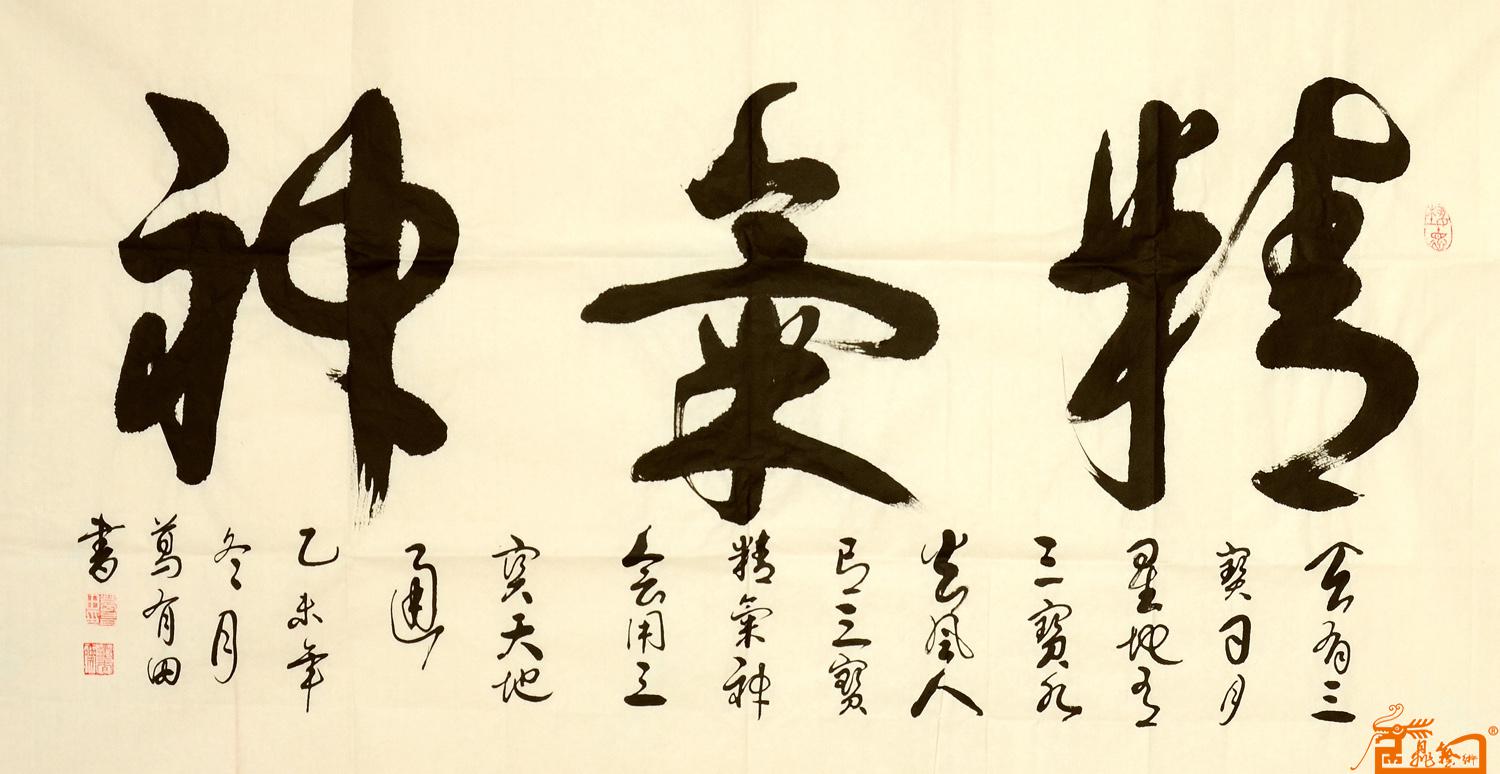 精氣神
天有三
寶日月
星地有
三寶水
火風人
有三寶
精氣神
會用三
寶天地
通
乙未年
冬月
葛有田
書